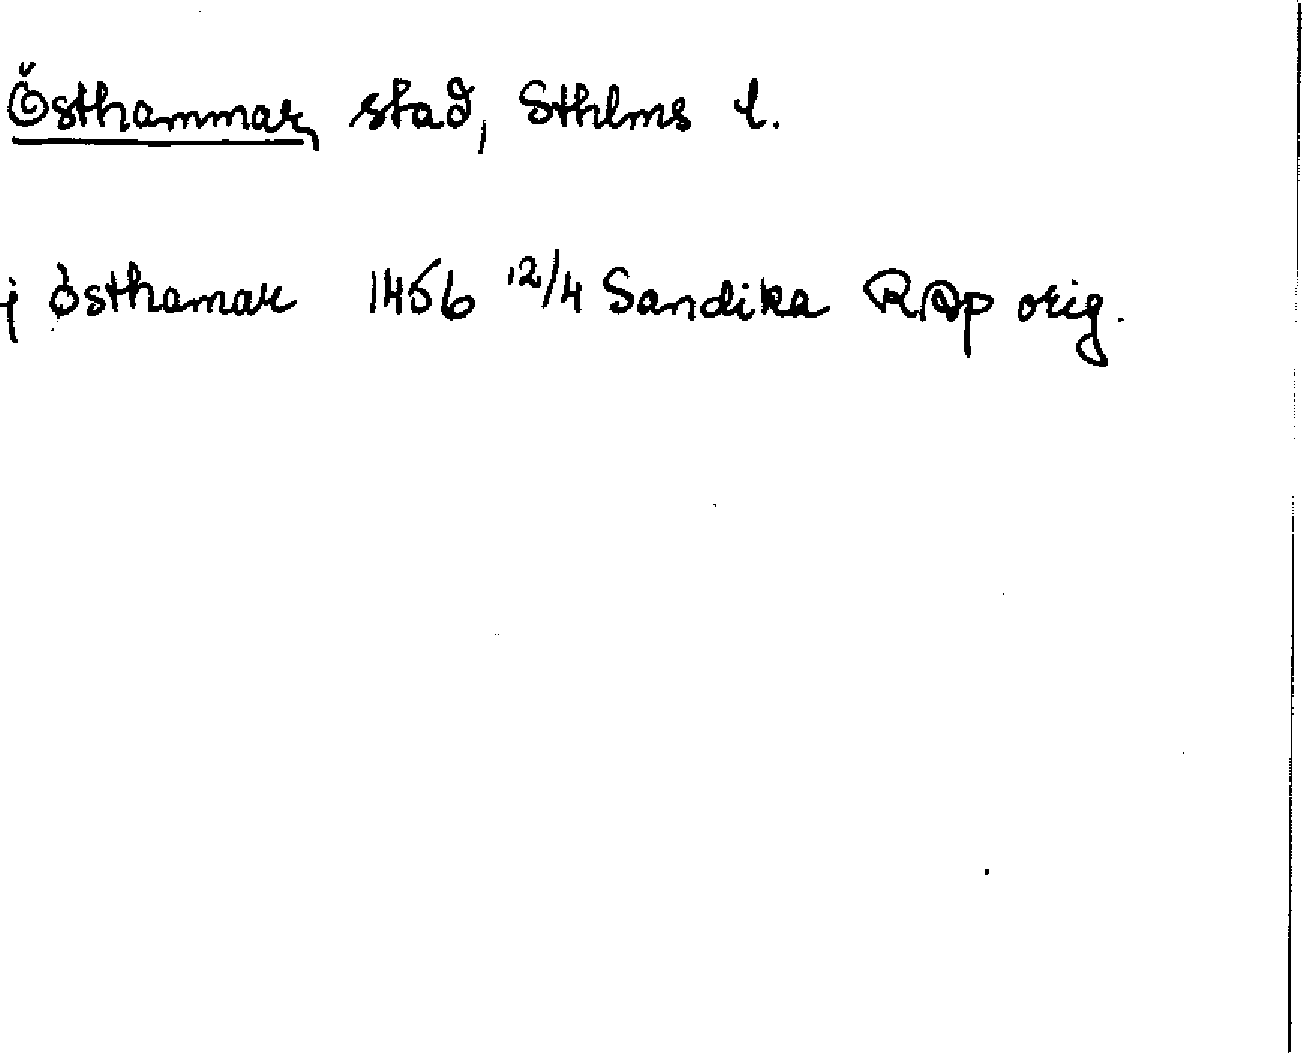 Östhammar, stad, Sthlms l.
j østhamar 1456 12/4 Sandika RAp orig.